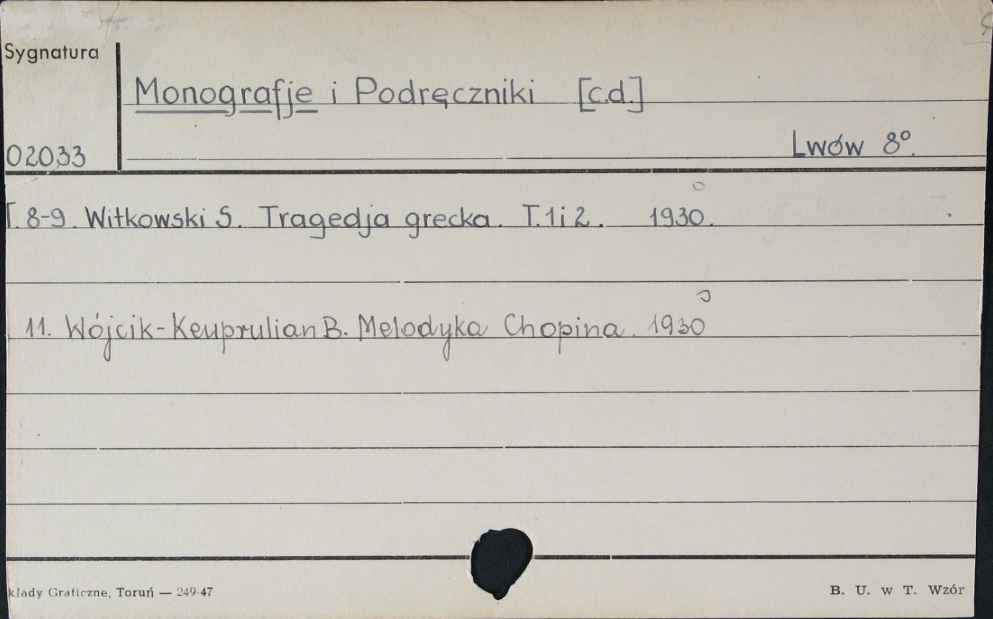 Sygnatura
Monografje i Podręczniki [c.d.]
02033
Lwów 8°.
T. 8-9. Witkowski S. Tragedja grecka. T. 1 i 2. 1930.
11. Wójcik-Keuprulian B. Melodyka Chopina. 1930
kłady Graficzne, Toruń — 249-47
B. U. w T. Wzór